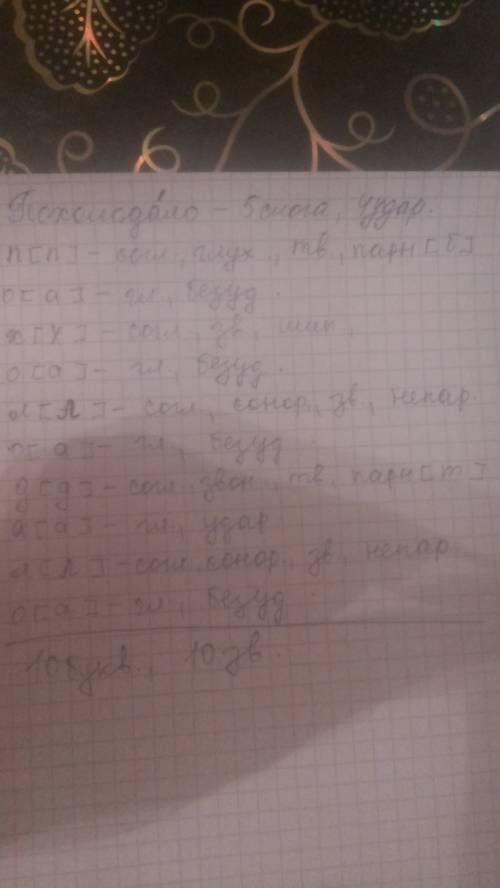 Похолода́ло - 5 слога, удар.
п [п] - согл, глух, тв, парн [б]
о [а] - гл, безуд.
х [х] - согл, зв, шип,
о [а] - гл, безуд.
л [л] - согл, сонор, зв, непар.
о [а] - гл, безуд.
д [д] - согл, звон, тв, парн [т]
а [а] - гл, удар.
л [л] - согл, сонор, зв, непар.
о [а] - гл, безуд.
10 букв., 10 зв.